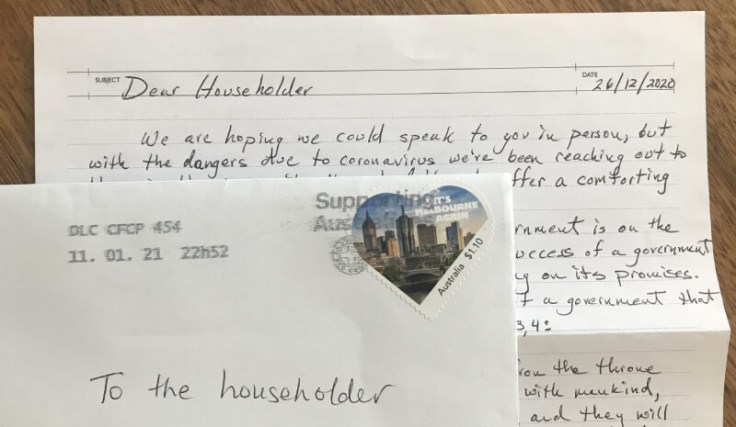 SUBJECT
Dear Householder
DATE
26/12/2020
We are hoping we could speak to you in person, but
with the dangers due to coronavirus we've been reaching out to
offer a comforting
is on the
of a government
on its promises.
a government that
3,4:
the throne
with mankind,
and they will
DLC CFCP 454
11. 01. 21 22h52
Supporting
IT'S
MELBOURNE
AGAIN
Australia $1.10
To the householder